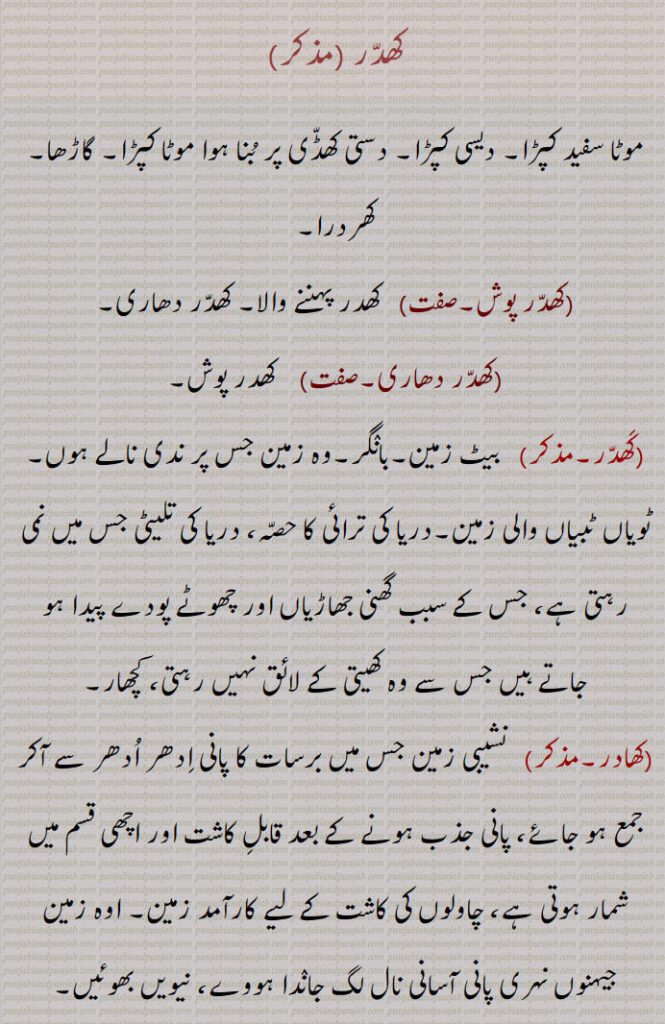 کھدّر (مذکر)
موٹا سفید کپڑا۔ دیسی کپڑا۔ دستی کھڈّی پر بُنا ہوا موٹا کپڑا۔ گاڑھا۔
کھردرا۔
(کھدّر پوش۔صفت) کھدر پہننے والا۔ کھدّر دھاری۔
(کھدّر دھاری۔صفت) کھدر پوش۔
(کَھدّر۔مذکر) بیٹ زمین۔بانگر۔وہ زمین جس پر ندی نالے ہوں۔
ٹویاں ٹبیاں والی زمین۔دریا کی ترائی کا حصّہ، دریا کی تلیٹی جس میں نمی
رہتی ہے، جس کے سبب گھنی جھاڑیاں اور چھوٹے پودے پیدا ہو
جاتے ہیں جس سے وہ کھیتی کے لائق نہیں رہتی، کچھار۔
(کھادر۔مذکر) نشیبی زمین جس میں برسات کا پانی اِدھر اُدھر سے آکر
جمع ہو جائے، پانی جذب ہونے کے بعد قابلِ کاشت اور اچھی قسم میں
شمار ہوتی ہے، چاولوں کی کاشت کے لیے کارآمد زمین۔ اوہ زمین
جیہنوں نہری پانی آسانی نال لگ جاندا ہووے، نیویں بھوئیں۔